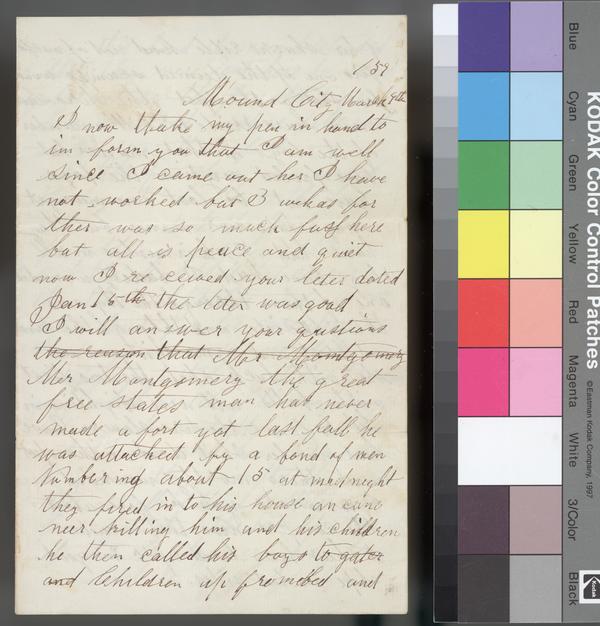 / 59
Mound City March 9th
I now thake my pen in hand to
im form you that I am well
since I came out her I have
not worked but 3 wekes for
ther was so much fuss here
but all is peace and quiet
now I re ceived your leter dated
Jan 15th the leter was good
I will answer your questions
the reason that Mr Montgomery
Mr Montgomery the great
free states man has never
made a fort yet last fall he
was attacked by a band of men
Numbering about 15 at midnight
they fired in to his house an came
neer killing him and his children
he then called his boys to gater
and Children up from bed and
KODAK Color Control Patches
©Eastman Kodak Company, 1997
Blue
Cyan
Green
Yellow
Red
Magenta
White
3/Color
Black
Kodak